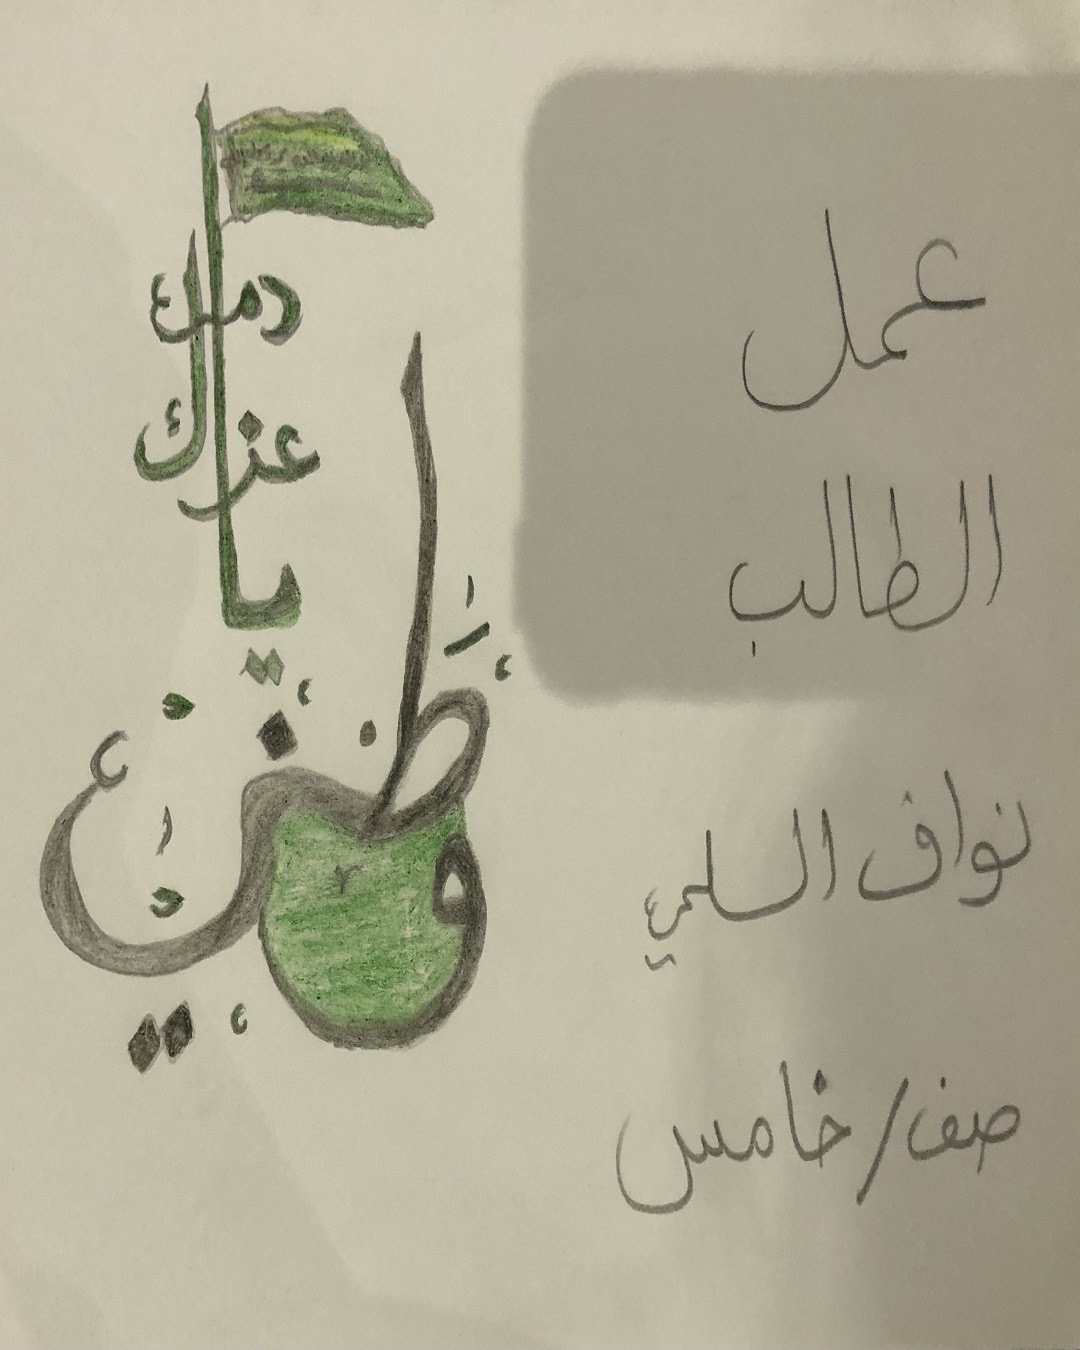 عزك
يا
وطني
عمل
الطالب
نواف السلمي
صف/خامس